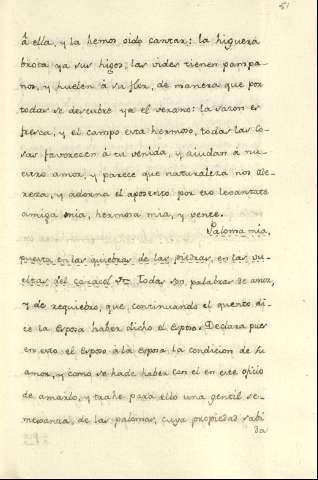 51
â ella, y la hemos oido cantar: la higuera
brota ya sus higos, las vides tienen pampa
nos, y huelen â su flor, de manera que por
todas se descubre ya el verano: la sazon es
fresca, y el campo esta hermoso, todas las co
sas favorecen â tu venida, y ayudan â nu
estro amor, y parece que naturaleza nos ade
reza, y adorna el aposento por eso levantate
amiga mia, hermosa mia, y vente.
Paloma mia,
puesta en las quiebras de las piedras, en las vu
eltas del caracol &c. Todas son palabras de amor,
y de requiebro, que continuando el quento, di
ce la Esposa haber dicho el Esposo. Declara pues
en esto el Esposo â la Esposa la condicion de su
amor, y como se ha de haber con el en este oficio
de amarlo, y trahe para ello una gentil se-
mejanza, de las palomas, cuya propiedad sabi
da